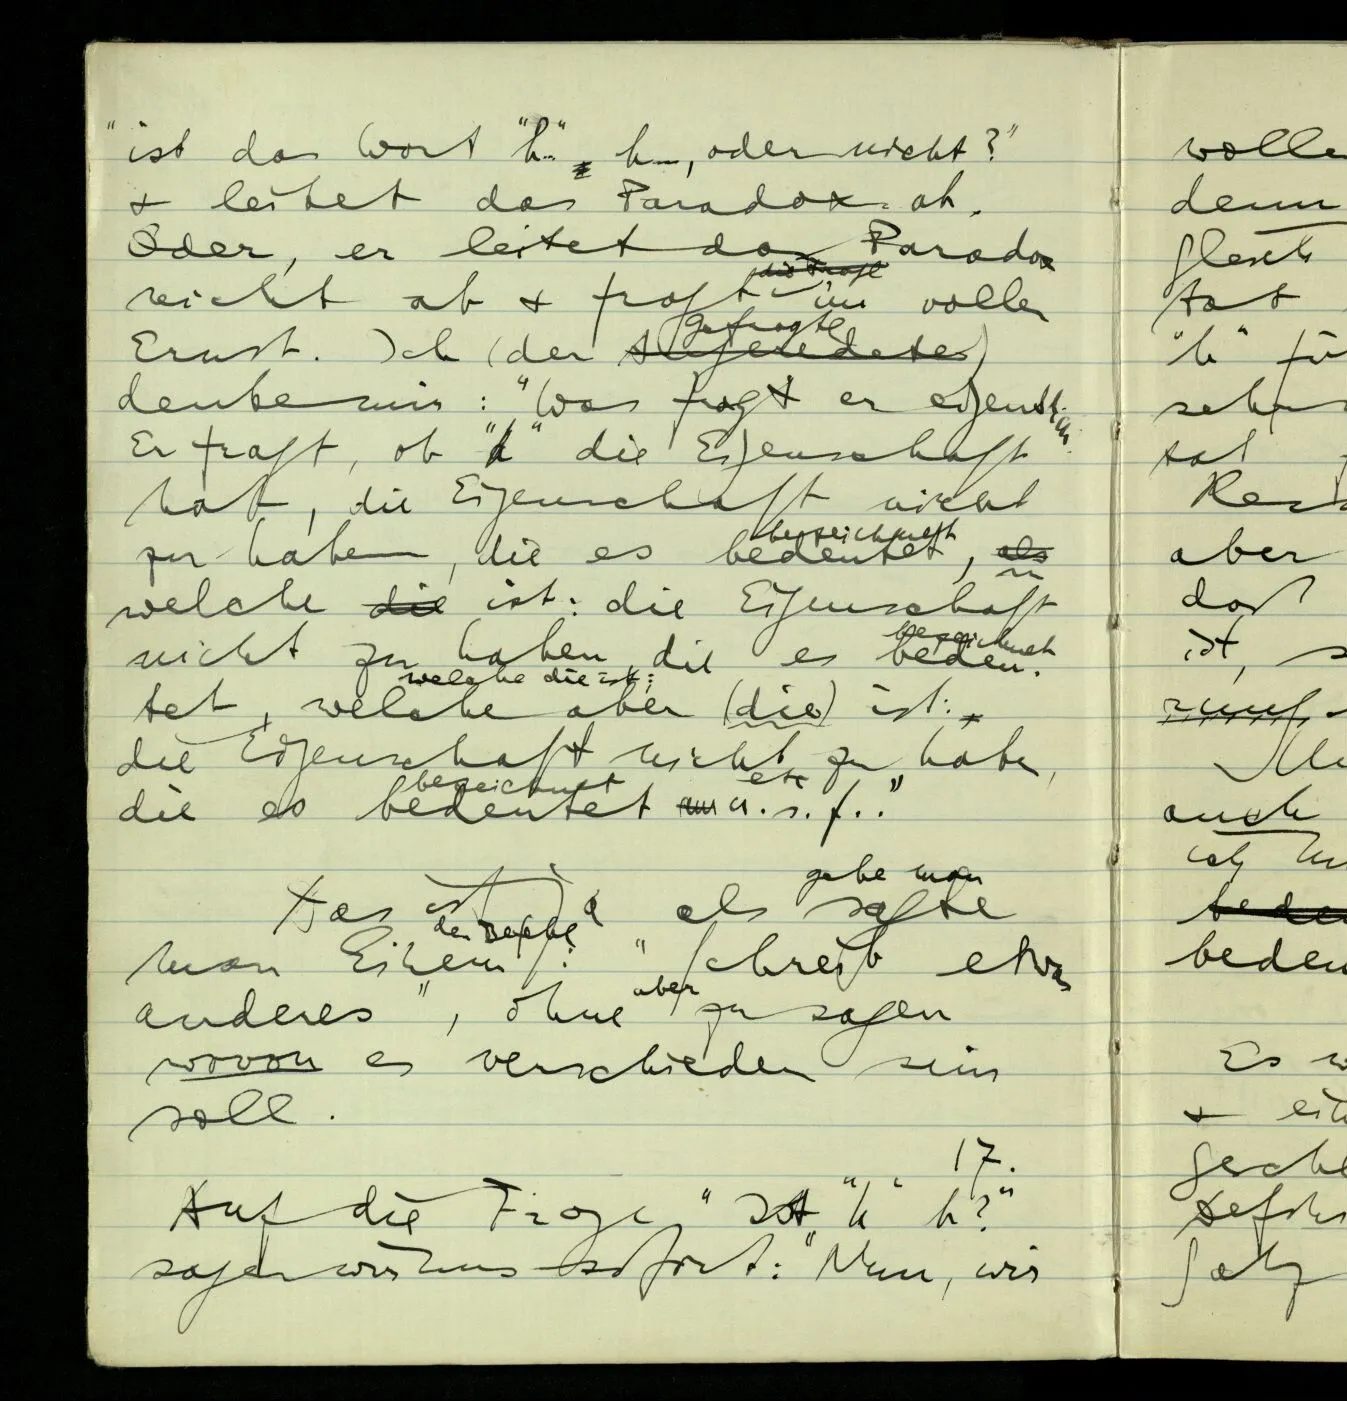 "ist das Wort "h" h, oder nicht?"
& leitet das Paradox ab.
Oder, er leitet das Paradox
nicht ab & fragt die Frage im vollen
Ernst. Ich (der Angeredete) gefragte
denke mir: "Was fragt er eigentlich?
Er fragt, ob "h" die Eigenschaft
hat, die Eigenschaft nicht
zu haben, die es bedeutet bezeichnet, als
welche die ist: die Eigenschaft
nicht zu haben, die es bedeu- bezeichnet
tet, welche die ist: welche aber (die) ist:
die Eigenschaft nicht zu haben,
die es bedeutet bezeichnet u.s.f. etc."
Das ist ja als sagte gäbe man
man Einem den Befehl: "Schreib etwas
anderes", ohne aber zu sagen
wovon es verschieden sein
soll.
17.
Auf die Frage "Ist "h" h?"
sagen wir uns sofort: "Nun, wir
wolle
denn
gleich
tat
"h" für
sehr
aber
daß
ist, s
auch
ich
beden
Es w
& ein
Satz